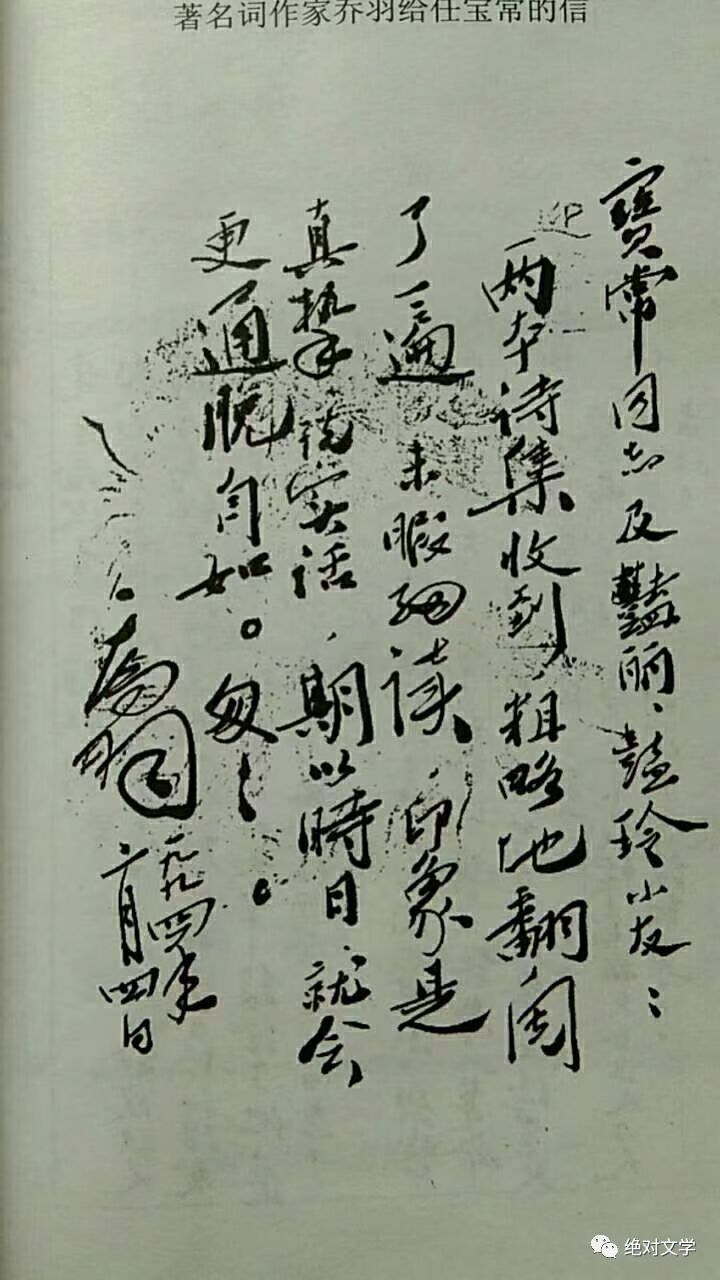 著名词作家乔羽给任宝常的信
寶常同志及豔丽、豔玲小友：
两本诗集收到，粗略地翻阅
了一遍，未暇细读，印象是
真挚，说实话，期以時日，就会
更通脱自如。匆匆。
乔羽
一九九四年
六月四日
绝对文学